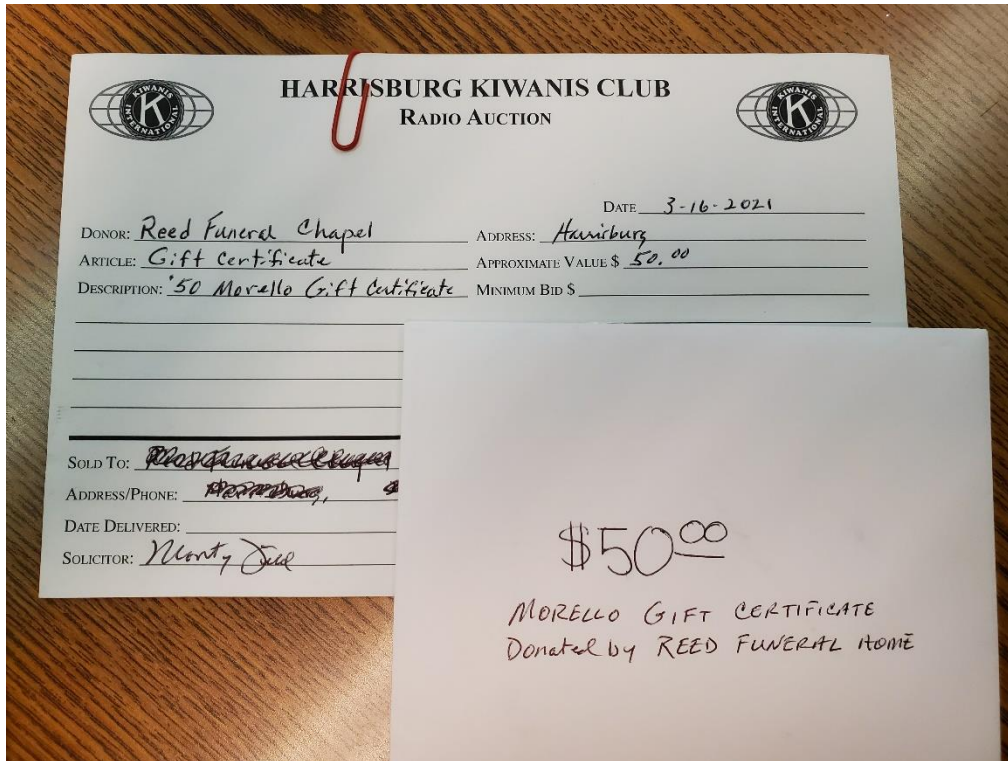 HARRISBURG KIWANIS CLUB
RADIO AUCTION
KIWANIS
K
INTERNATIONAL
KIWANIS
K
INTERNATIONAL
DATE 3-16-2021
DONOR: Reed Funeral Chapel ADDRESS: Harrisburg
ARTICLE: Gift Certificate APPROXIMATE VALUE $ 50.00
DESCRIPTION: $50 Morello Gift Certificate MINIMUM BID $
SOLD TO:
ADDRESS/PHONE:
DATE DELIVERED:
SOLICITOR: Monty
$50.00
MORELLO GIFT CERTIFICATE
Donated by REED FUNERAL HOME